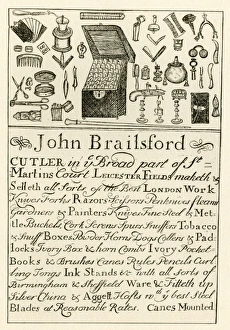 John Brailsford
CUTLER in yͤ Broad part of Sͭ
Martins Court LEICESTER FIELDS maketh &
Selleth all sorts of the Best LONDON Work
Knives Forks RAZORS Scissors Penknives fleams
Gardners & Painters Knives Fine Steel & Met-
tle Buckels Cork Screws Spurs Snuffers Tobacco
& Snuff BOXES Powder Horns Dogs Collers & Pad-
locks Ivory Box & horn Combs Ivory Pocket
Books & Brushes Canes Rules Pencils Curl
ling Tongs Ink Stands &c with all sorts of
Birmingham & Sheffield Ware & Filleth up
Silver China & Aggett Hafts with yͤ best Steel
Blades at Reasonable Rates. Canes Mounted